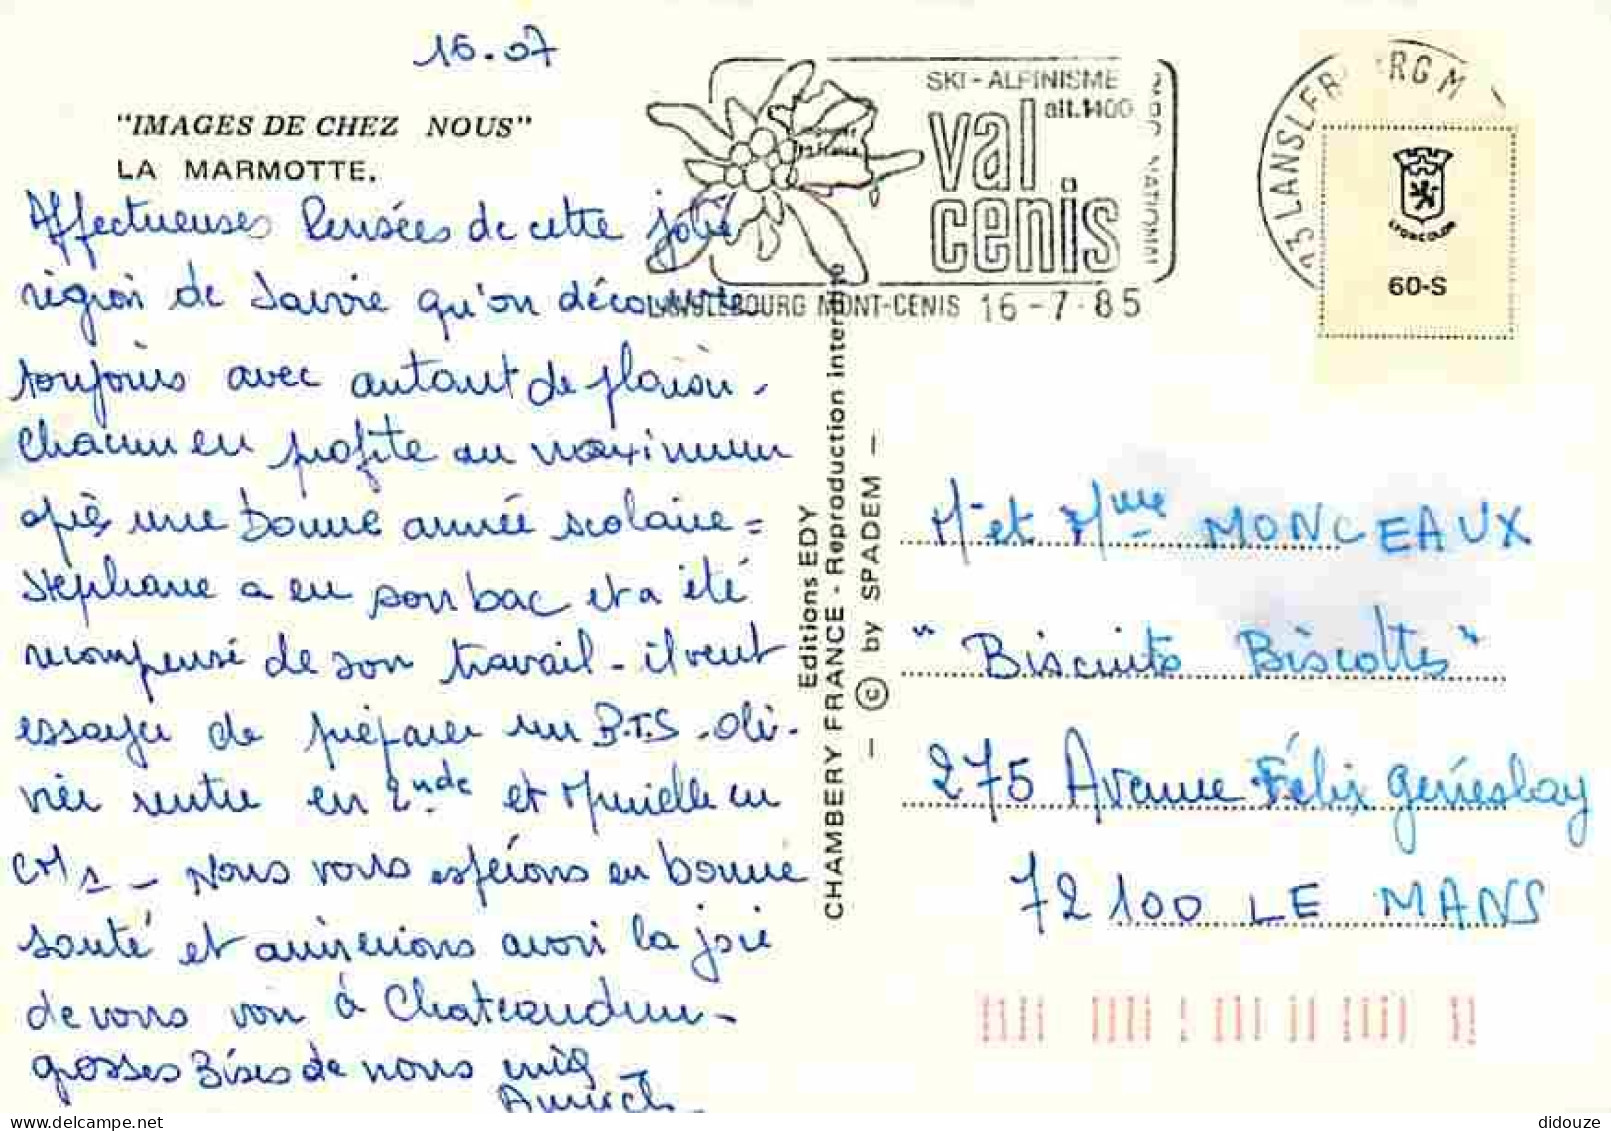 16.07
"IMAGES DE CHEZ NOUS"
LA MARMOTTE.
Affectueuses Pensées de cette jolie
région de Savoie qu'on découvre
toujours avec autant de plaisir.
Chacun en profite au maximum
après une bonne année scolaire =
Stéphane a eu son bac et a été
récompensé de son travail - il veut
essayer de préparer un B.T.S. Oli-
vier rentre en 2nde et Murielle en
CM1 - Nous vous espérons en bonne
santé et aimerions avoir la joie
de vous voir à Chateaudun -
grosses Bises de nous
SKI - ALPINISME
alt.1400
val
cenis
LANSLEBOURG MONT-CENIS 16-7-85
73 LANSLEB
LYONCOLOR
60-S
Editions EDY
CHAMBERY FRANCE - Reproduction interdite
- © by SPADEM -
Mr et Mme MONCEAUX
"Biscuits Biscottes"
275 Avenue Félix Genieslay
72100 LE MANS
didouze